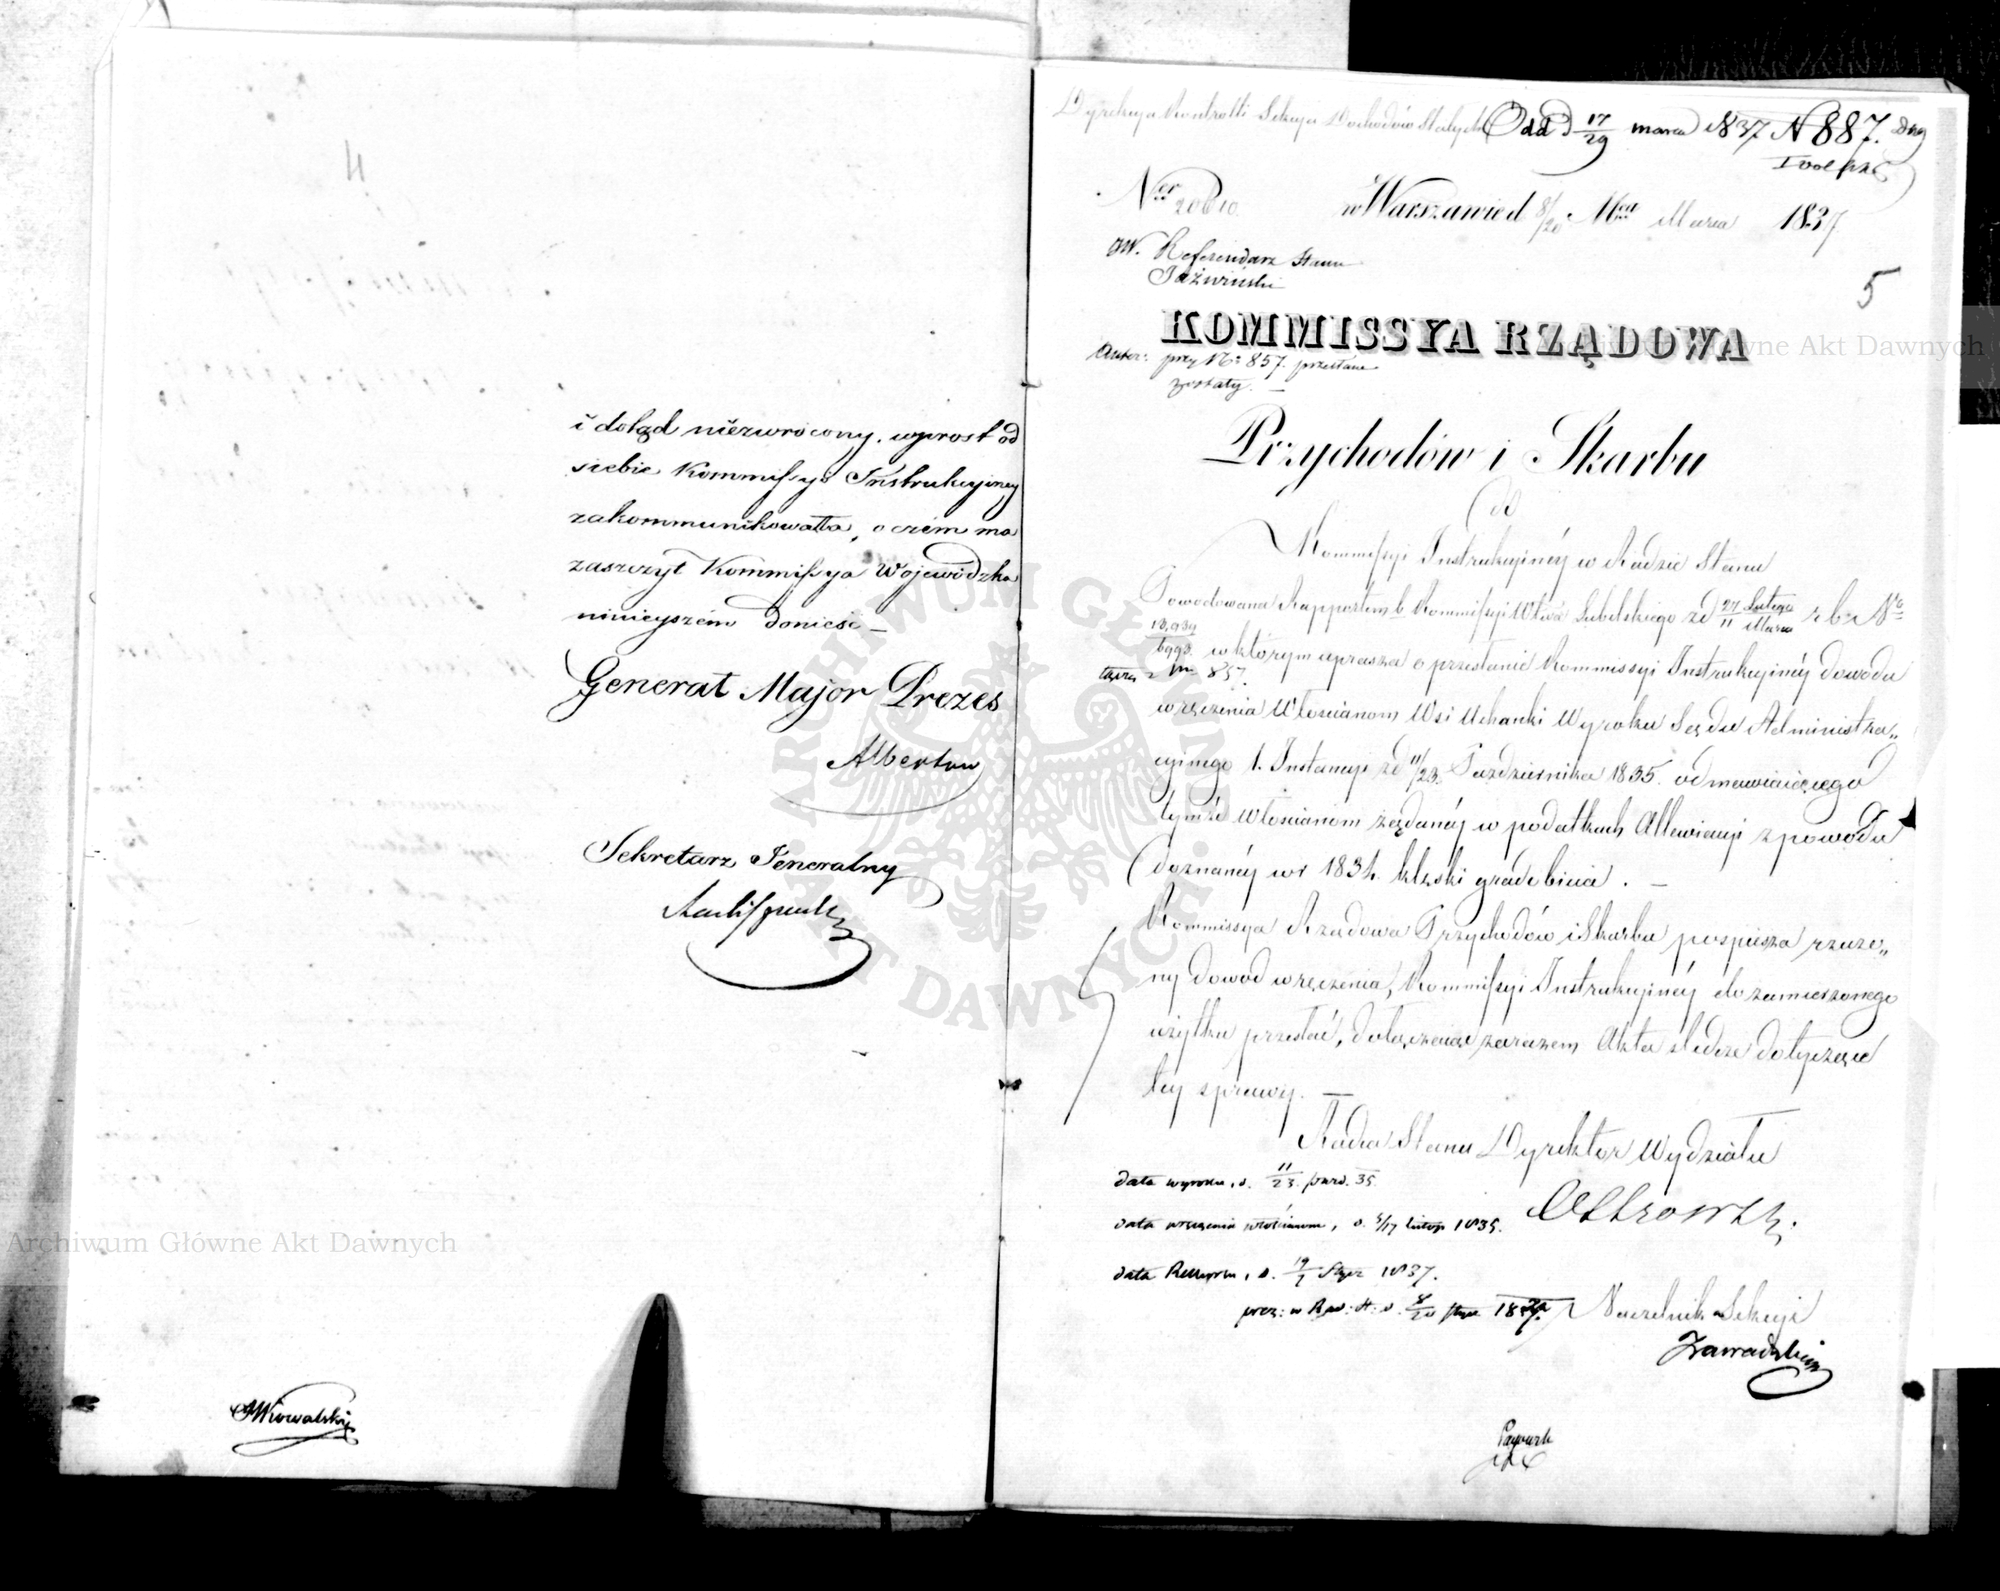 i dotąd niezwrócony, wprost od
siebie Kommissyi Instrukcyiney
zakommunikowała, o czém ma
zaszczyt Kommissya Wojewódzka
ninieyszém donieść —
Generał Major Prezes
Albertow
Sekretarz Jeneralny
Kowalski
Dyrekcya Kontrolli Sekcya Dochodów Stałych
Odd 17/29 marca 1837 N 887.
Ner 20610
w Warszawie d 8/20 Mca Marca 1837
JW. Referendarz Stanu
Jaźwiński
5
KOMMISSYA RZĄDOWA
przy No 857. przesłane
zostały. —
Przychodów i Skarbu
Do
Kommissyi Instrukcyinéy w Radzie Stanu
Powodowana Rapportem b. Kommissyi Wtwa Lubelskiego z d 27 Lutego/11 Marca r. b. No
13,939/6993. w którym uprasza o przesłanie Kommissyi Instrukcyinéy dowodu
857.
wręczenia Włościanom Wsi Uchanki Wyroku Sądu Administra„
cyinego 1. Instancyi z d 11/23. Października 1835. odmawiaiącego
tymże Włościanom żądanéy w podatkach Allewiacyi z powodu
doznanéy w r 1834. klęski gradobicia. —
Kommissya Rządowa Przychodów i Skarbu pospiesza rzeczo„
ny dowód wręczenia, Kommissyi Instrukcyinéy do zamierzonego
użytku przesłać, dołączaiąc zarazem Akta śledcze dotyczące
tey sprawy. —
Radca Stanu Dyrektor Wydziału
data wyroku, d. 11/23. paźd. 35.
data wręczenia włościanom, d. 5/17 listop 1835.
data Rekursu, d. 19/7 Stycz 1837.
8/20 1837.
Naczelnik Sekcyi
Zawadzki
Archiwum Główne Akt Dawnych
Archiwum Główne Akt Dawnych
ARCHIWUM GŁÓWNE AKT DAWNYCH